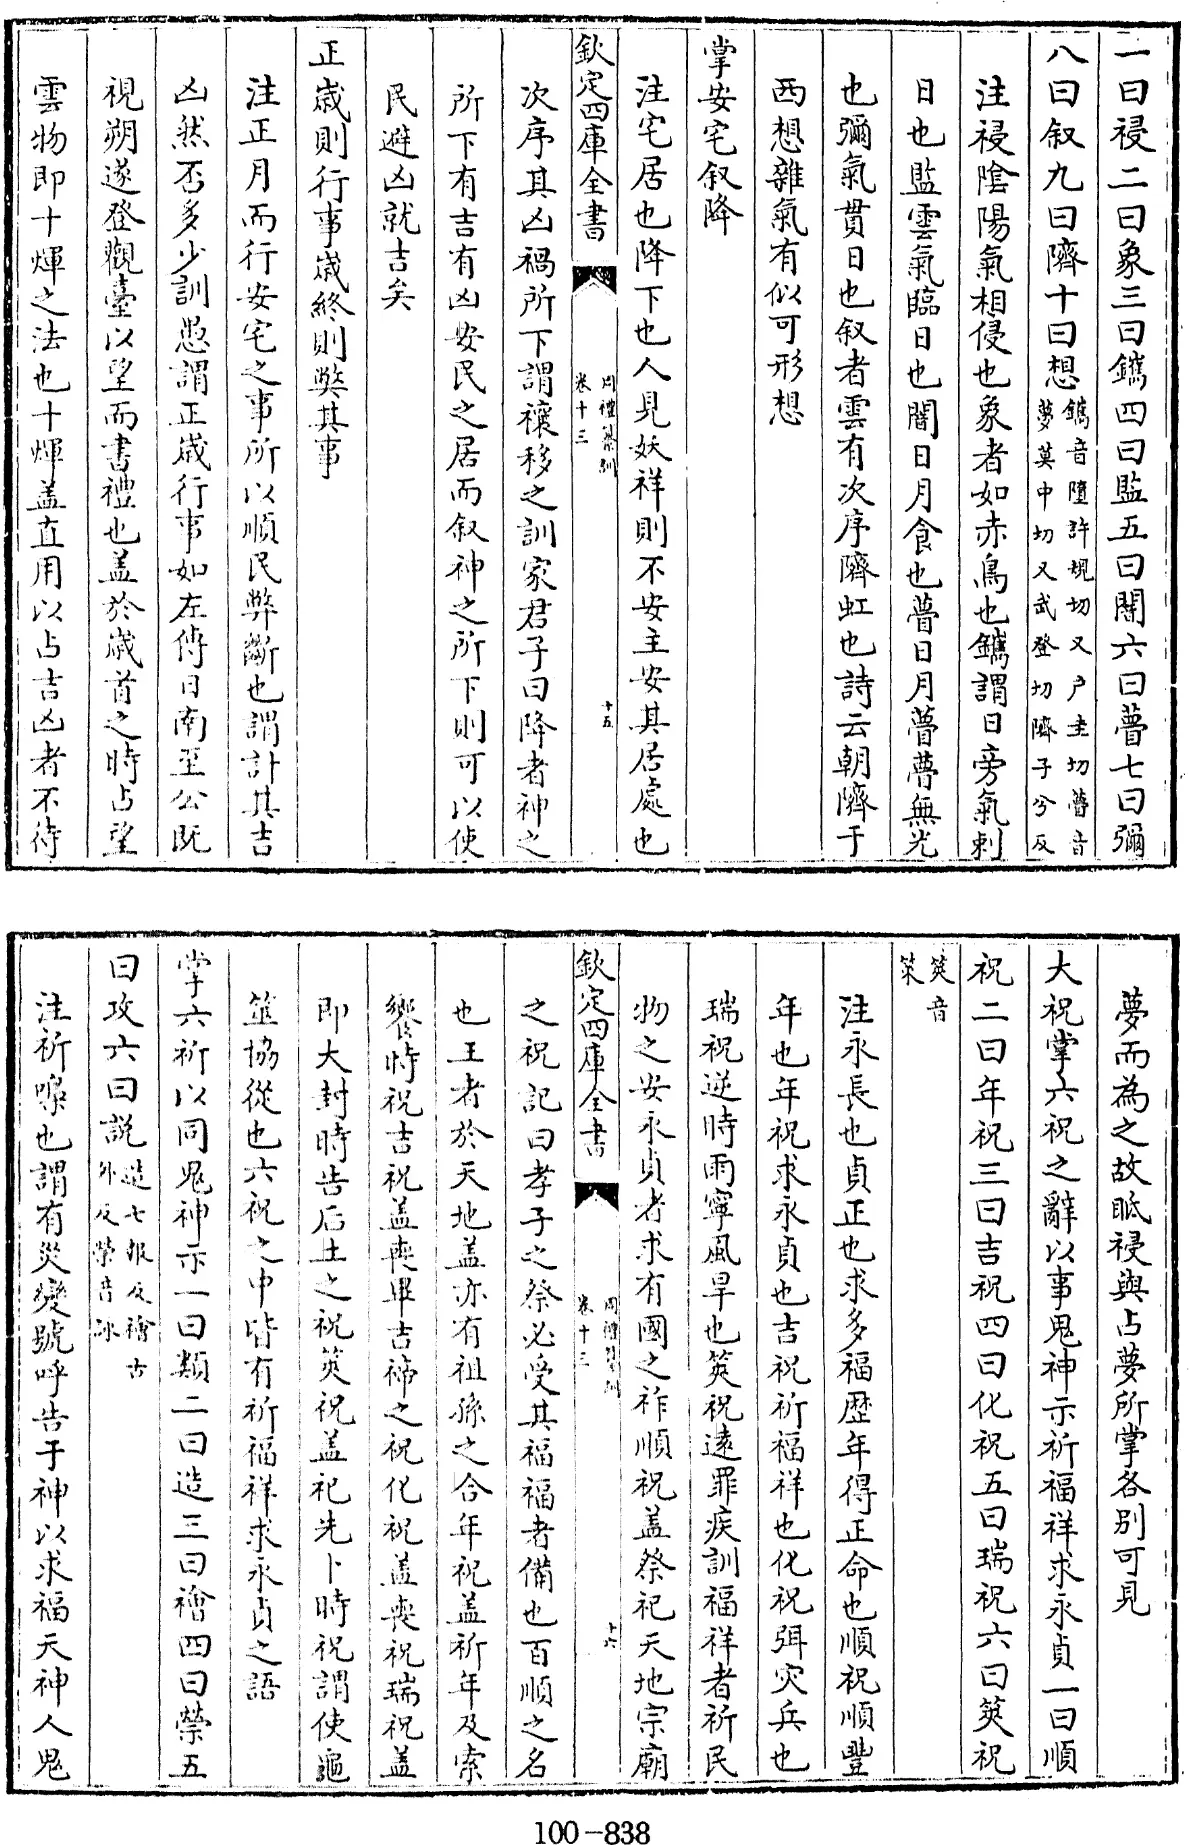 一曰祲二曰象三曰鑴四曰監五曰闇六曰瞢七曰彌
八曰叙九曰隮十曰想鑴音隳許規切又戸圭切瞢音夢莫中切又武登切隮子兮反
注祲陰陽氣相侵也象者如赤烏也鑴謂日旁氣刺
日也監雲氣臨日也闇日月食也瞢日月瞢瞢無光
也彌氣貫日也叙者雲有次序隮虹也詩云朝隮于
西想雜氣有似可形想
掌安宅叙降
注宅居也降下也人見妖祥則不安主安其居處也
欽定四庫全書
周禮纂訓
卷十三
十五
次序其凶禍所下謂禳移之訓家君子曰降者神之
所下有吉有凶安民之居而叙神之所下則可以使
民避凶就吉矣
正歲則行事歲終則弊其事
注正月而行安宅之事所以順民弊斷也謂計其吉
凶然否多少訓愚謂正歲行事如左傳日南至公既
視朔遂登觀臺以望而書禮也盖於歲首之時占望
雲物即十煇之法也十煇盖直用以占吉凶者不待
夢而為之故眡祲與占夢所掌各别可見
大祝掌六祝之辭以事鬼神示祈福祥求永貞一曰順
祝二曰年祝三曰吉祝四曰化祝五曰瑞祝六曰筴祝
筴音策
注永長也貞正也求多福歴年得正命也順祝順豐
年也年祝求永貞也吉祝祈福祥也化祝弭灾兵也
瑞祝逆時雨寧風旱也筴祝遠罪疾訓福祥者祈民
物之安永貞者求有國之祚順祝盖祭祀天地宗廟
欽定四庫全書
周禮纂訓
卷十三
十六
之祝記曰孝子之祭必受其福福者備也百順之名
也王者於天地盖亦有祖孫之合年祝盖祈年及索
饗時祝吉祝盖喪畢吉禘之祝化祝盖喪祝瑞祝盖
即大封時告后土之祝筴祝盖祀先卜時祝謂使龜
筮協從也六祝之中皆有祈福祥求永貞之語
掌六祈以同鬼神示一曰類二曰造三曰禬四曰禜五
曰攻六曰説造七報反禬古外反禜音詠
注祈嘄也謂有災變號呼告于神以求福天神人鬼
100-838